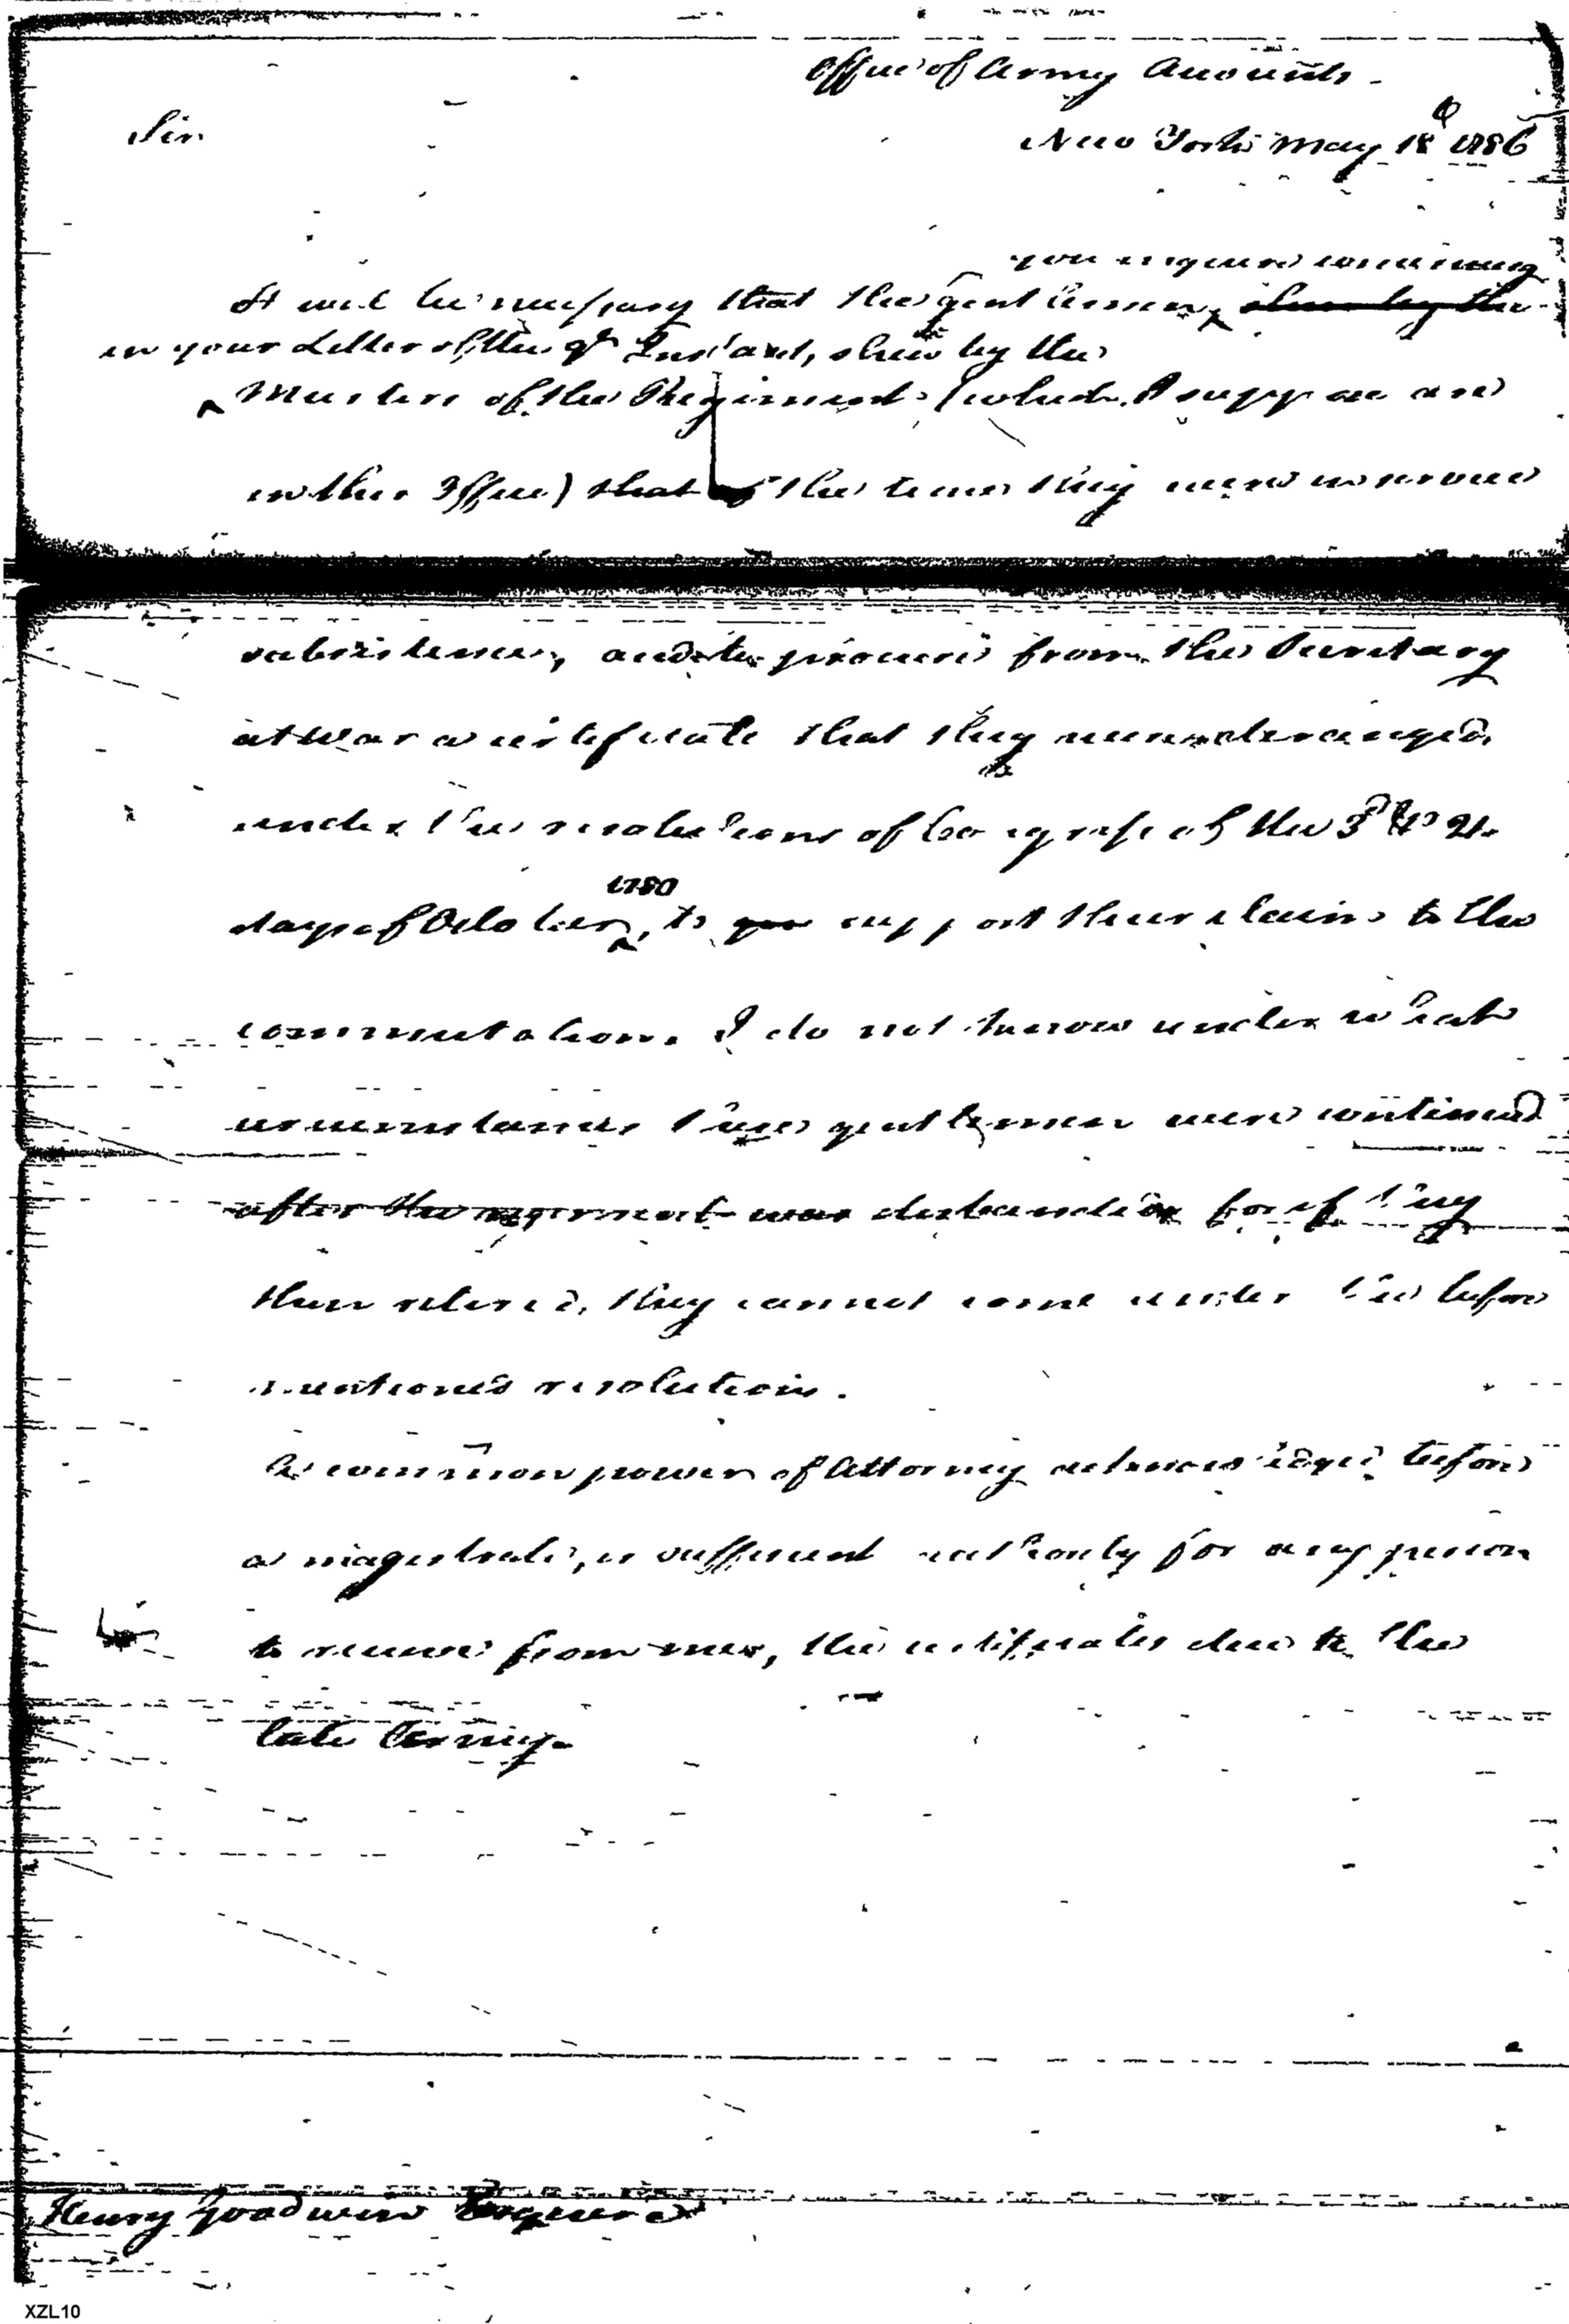 Office of Army Accounts
Sir
New York May 18th 1786
you enquire concerning
It will be necessary that the gentlemen, shew by the
in your Letter of the 9th Instant, shew by the
Musters of the Regiment (which I suppose are
in their Office) that the time they were
subsistence, and to procure from the Secretary
at War a certificate that they were deranged
under the resolutions of Congress of the 3d & 21
days of October 1780, to support their claim to the
commutation. I do not know under what
circumstances these gentlemen were continued
after the regiment was disbanded for if they
then retired, they cannot come under the before
mentioned resolution.
A common power of Attorney acknowledged before
a magistrate, is sufficient authority for any person
to receive from me, the certificates due to the
late Army.
Henry Goodwin Esquire
XZL10